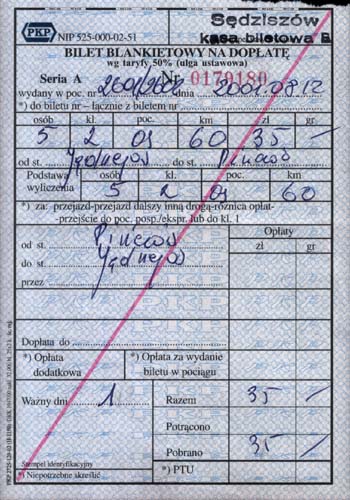 Sędziszów
PKP NIP 525-000-02-51 kasa biletowa B
BILET BLANKIETOWY NA DOPŁATĘ
wg taryfy 50% (ulga ustawowa)
Seria A Nr 0179180
wydany w poc. nr dnia
*) do biletu nr – łącznie z biletem nr
osób kl. poc. km zł gr
5 2 os 60 35 /
od st. do st. Pińczów
Podstawa wyliczenia osób kl. poc. km
5 2 os 60
*) za: przejazd-przejazd dalszy inną drogą-różnica opłat-
-przejście do poc. posp./ekspr. lub do kl. 1
Opłaty
od st. Pińczów zł gr
do st.
przez
Dopłata do
*) Opłata dodatkowa *) Opłata za wydanie biletu w pociągu
Ważny dni 1 Razem 35 /
Potrącono
Pobrano 35 /
Stempel identyfikacyjny
*) Niepotrzebne skreślić *) PTU